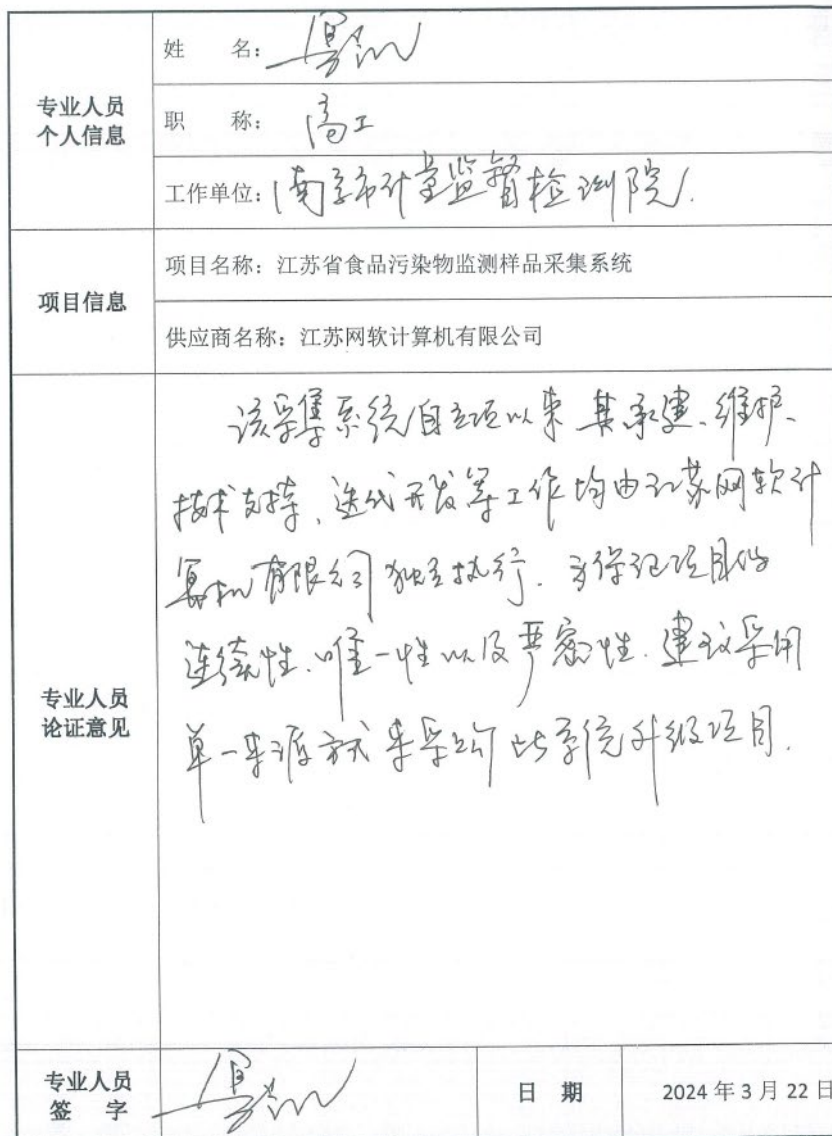 专业人员
个人信息
姓 名：
职 称： 高工
工作单位： 南京市计量监督检测院.
项目信息
项目名称：江苏省食品污染物监测样品采集系统
供应商名称：江苏网软计算机有限公司
专业人员
论证意见
该采集系统自立项以来其承建、维护、
技术支持、迭代开发等工作均由江苏网软计
算机有限公司独立执行. 为保证项目的
连续性、唯一性以及严密性. 建议采用
单一来源方式来采购此系统升级项目.
专业人员
签 字
日 期
2024 年 3 月 22 日